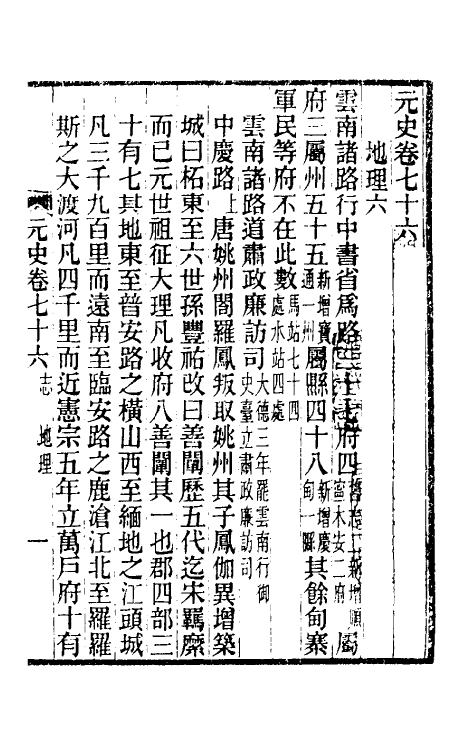 元史卷七十六
地理六
雲南諸路行中書省爲路 府四 屬
府三屬州五十五新增寶通一州屬縣四十八新增慶甸一縣其餘甸寨
軍民等府不在此數馬站七十四處水站四處
雲南諸路道肅政廉訪司大德三年罷雲南行御史臺立肅政廉訪司
中慶路上唐姚州閣羅鳳叛取姚州其子鳳伽異增築
城曰柘東至六世孫豐祐改曰善闡歷五代迄宋羈縻
而已元世祖征大理凡收府八善闡其一也郡四部三
十有七其地東至普安路之橫山西至緬地之江頭城
凡三千九百里而遠南至臨安路之鹿滄江北至羅羅
斯之大渡河凡四千里而近憲宗五年立萬戶府十有
元史卷七十六 志 地理 一